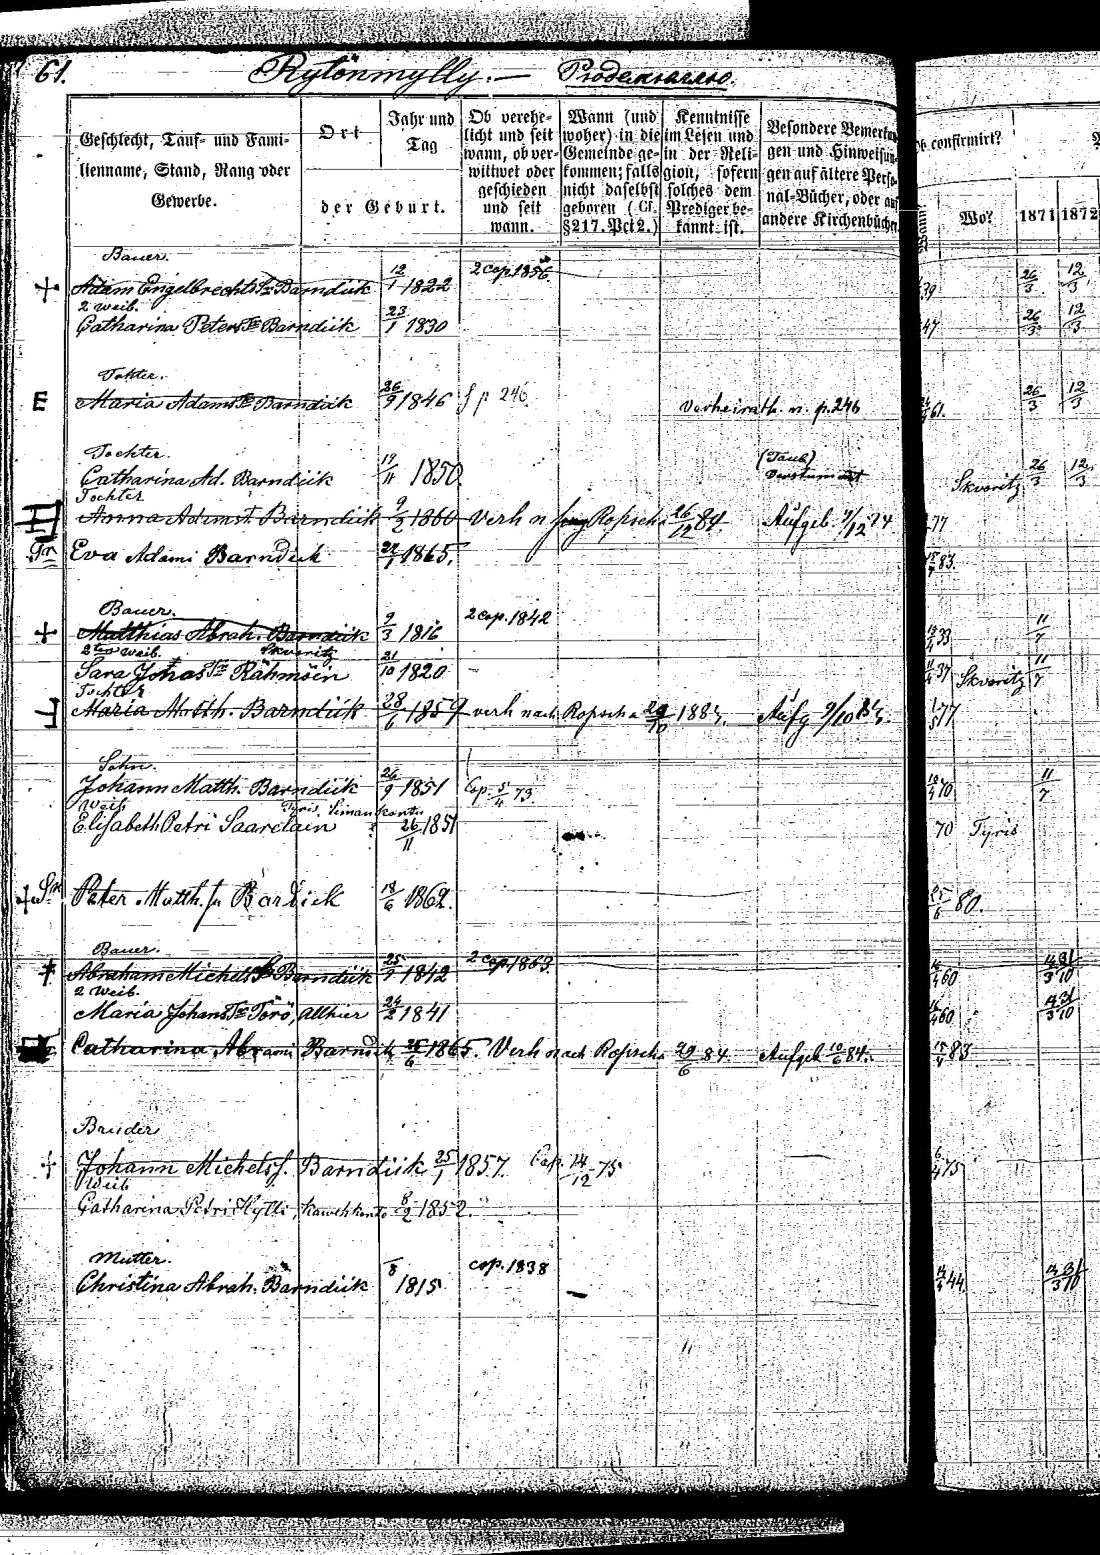 61. Rytönmylly. — Рюдемюлло.
Geschlecht, Tauf- und Fami-
lienname, Stand, Rang oder
Gewerbe.
Ort
Jahr und
Tag
der Geburt.
Ob verehe-
licht und seit
wann, ob ver-
wittwet oder
geschieden
und seit
wann.
Wann (und
woher) in die
Gemeinde ge-
kommen; falls
nicht daselbst
geboren (Cf.
§ 217. Pct 2.)
Kenntnisse
im Lesen und
in der Reli-
gion, sofern
solches dem
Prediger be-
kannt ist.
Besondere Bemerkun-
gen und Hinweisun-
gen auf ältere Perso-
nal-Bücher, oder auf
andere Kirchenbücher
Ob confirmirt?
Wann?
Wo?
1871 1872
Bauer.
+ Adam Engelbrechts Sn Barndük 12/1 1822 2 cop. 1856. 39 26/3 12/3
2 Weib.
Catharina Peters Tr Barndük 23/1 1830 47 26/3 12/3
Tochter.
E Maria Adams Tr Barndük 26/9 1846 f p 246 Verheirath. n. p. 246 61. 26/3 12/3
Tochter. (Taub)
Catharina Ad. Barndük 19/4 1850 Skworitz 26/3 12/3
Tochter
Anna Adamst. Barndük 9/2 1860 Verh n Ropscha 26/12 84. Aufgeb. 9/12 77
Eva Adami Barndük 1865. 83.
Bauer.
+ Matthias Abrah. Barndük 9/3 1816 2 cop. 1842 33 11/7
2tes Weib. Skworitz
Sara Johas Tr Rähmöin 21/10 1820 37 Skworitz 11/7
Tochter
Maria Matth. Barndük 28/6 1859 verh nach Ropscha 1884. Aufg 9/10 84. 77
Sohn.
Johann Matth. Barndük 26/9 1851 Cop. 5/4 73. 70 11/7
Weib Tyris.
Elisabeth Petri Saarelain 26/11 1851 70 Tyris
+ Sn Peter Matth. sn Bardick 18/6 1862. 80.
Bauer.
+ Abraham Michels Sn Barndük 25/9 1842 2 cop. 1863. 60
2 Weib.
Maria Johans Tr Törö, Allhier 24/2 1841 60
Catharina Abrami Barndük 1865. Verh nach Ropscha 84. Aufgeb 10/6 84. 83
Bruder
+ Johann Michels s. Barndük 25/1 1857. Cop. 14/12 75 75
Weib
Catharina Petri Hytti, 8/2 1852.
Mutter. cop. 1838
Christina Abrah. Barndük /8 1815 44